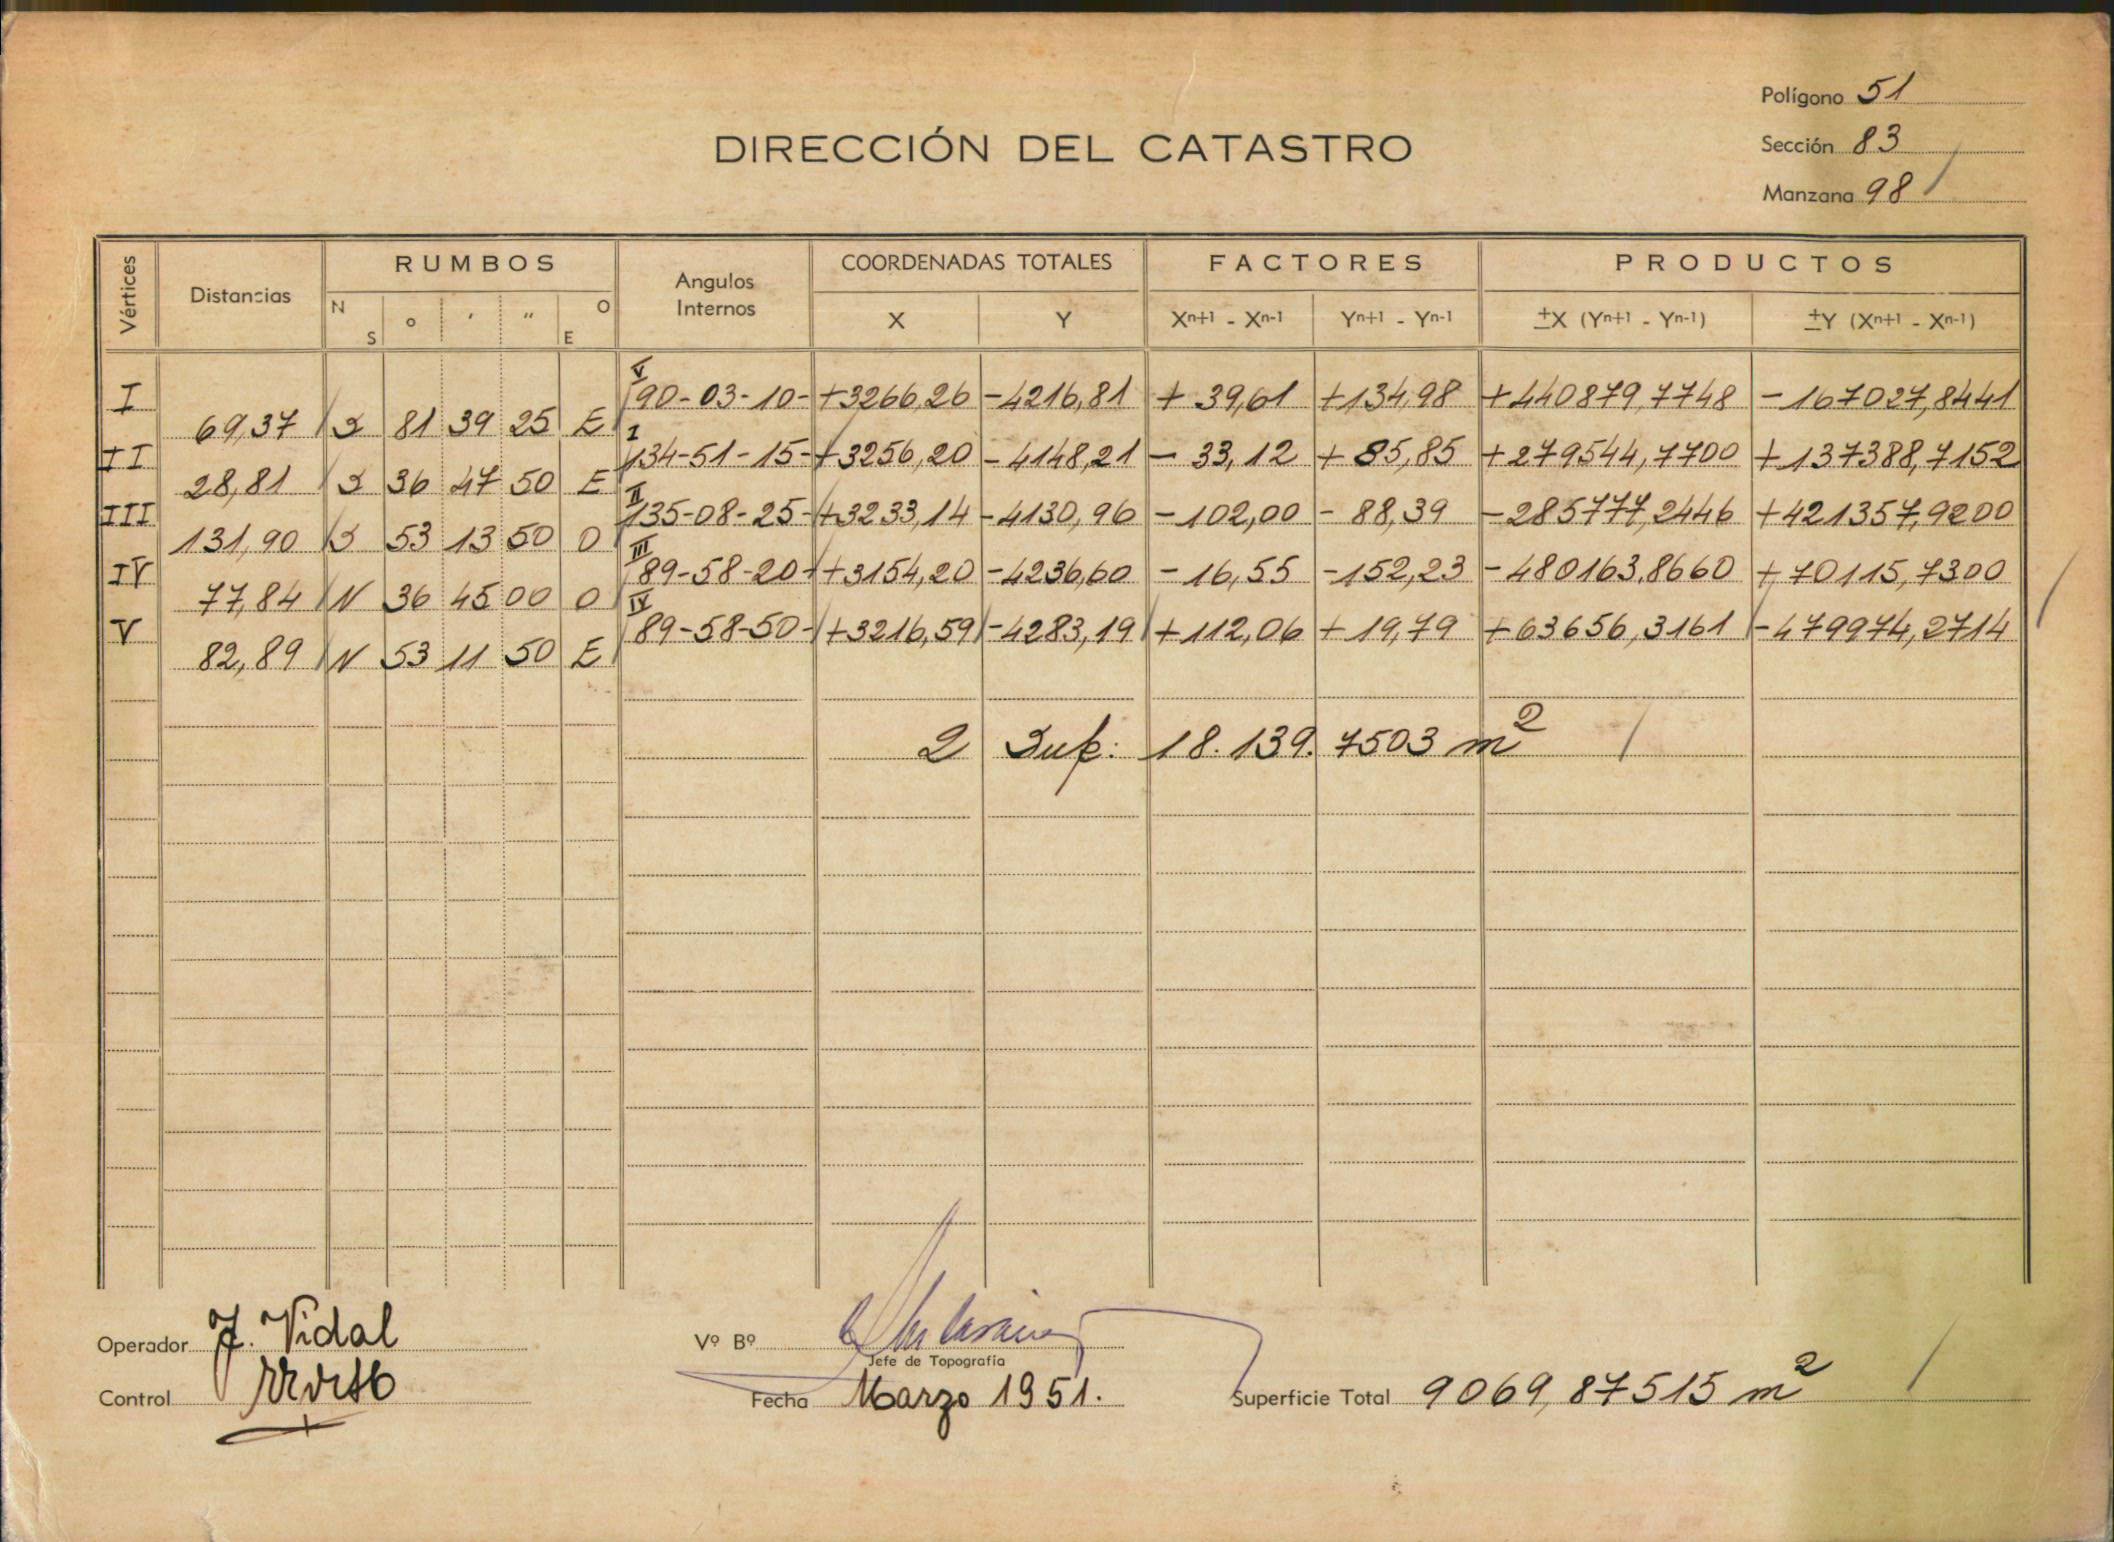 Polígono 51
DIRECCIÓN DEL CATASTRO
Sección 83
Manzana 98
Vértices Distancias RUMBOS Angulos Internos COORDENADAS TOTALES FACTORES PRODUCTOS
N S ° ' " O E X Y Xn+1 - Xn-1 Yn+1 - Yn-1 ±X (Yn+1 - Yn-1) ±Y (Xn+1 - Xn-1)
I V 90-03-10- +3266,26 -4216,81 + 39,61 +134,98 +440879,7748 -167027,8441
69,37 S 81 39 25 E
II I 134-51-15- +3256,20 -4148,21 - 33,12 + 85,85 +279544,7700 +137388,7152
28,81 S 36 47 50 E
III II 135-08-25- +3233,14 -4130,96 -102,00 - 88,39 -285777,2446 +421357,9200
131,90 S 53 13 50 O
IV III 89-58-20- +3154,20 -4236,60 -16,55 -152,23 -480163,8660 +70115,7300
77,84 N 36 45 00 O
V IV 89-58-50- +3216,59 -4283,19 +112,06 + 19,79 +63656,3161 -479974,2714
82,89 N 53 11 50 E
2 Sup: 18.139.7503 m2
Operador J. Vidal
Vº Bº
Jefe de Topografía
Control
Fecha Marzo 1951.
Superficie Total 9069,87515 m2